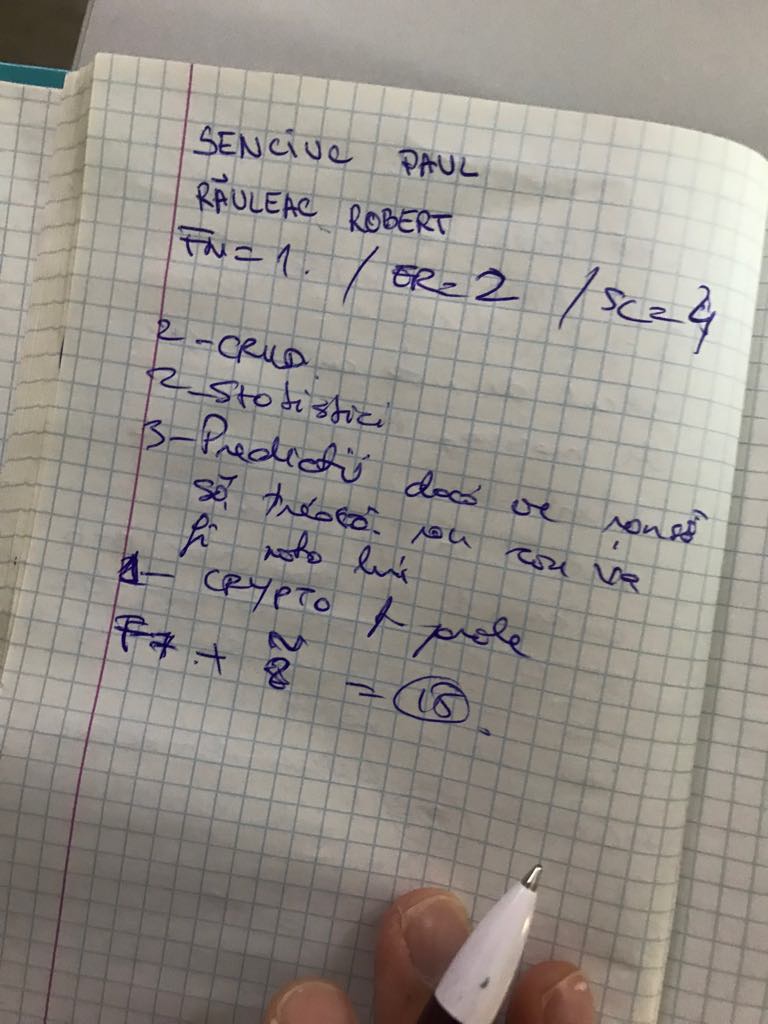 SENCIUC PAUL
RĂULEAC ROBERT
FN=1. / ER=2 / SC=4
2-CRUD.
2-Statistici
3-Predicții dacă ve
să treacă. sau va
fi nota lui
1- CRYPTO parole
F7 + 8 = 15.